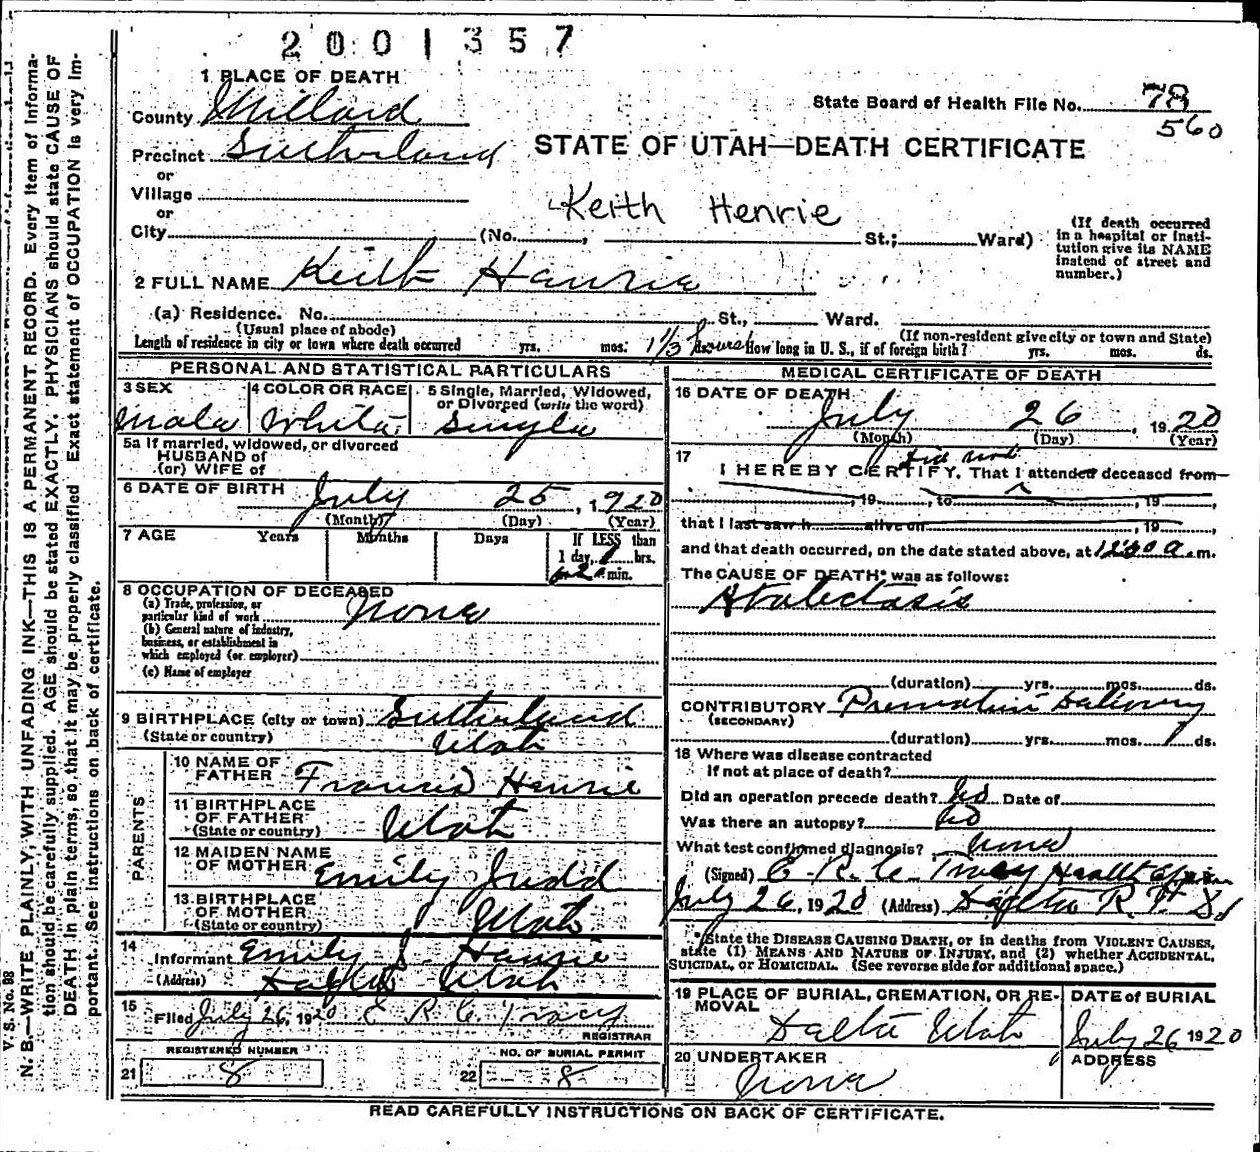 2001357
1 PLACE OF DEATH
County Millard
State Board of Health File No. 78
560
Precinct Sutherland
STATE OF UTAH—DEATH CERTIFICATE
or
Village
or
Keith Henrie
City (No. , St.; Ward)
(If death occurred in a hospital or institution give its NAME instend of street and number.)
2 FULL NAME Keith Henrie
(a) Residence. No. St., Ward.
(Usual place of abode) (If non-resident give city or town and State)
Length of residence in city or town where death occurred yrs. mos. 1 1/3 hours ds. How long in U. S., if of foreign birth? yrs. mos. ds.
PERSONAL AND STATISTICAL PARTICULARS
3 SEX Male
4 COLOR OR RACE White
5 Single, Married, Widowed, or Divorced (write the word) Single
5a If married, widowed, or divorced
HUSBAND of
(or) WIFE of
6 DATE OF BIRTH July 25, 1920
(Month) (Day) (Year)
7 AGE Years Months Days If LESS than
1 day, 1 hrs.
or 20 min.
8 OCCUPATION OF DECEASED
(a) Trade, profession, or particular kind of work None
(b) General nature of industry, business, or establishment in which employed (or employer)
(c) Name of employer
9 BIRTHPLACE (city or town) Sutherland
(State or country) Utah
PARENTS
10 NAME OF FATHER Francis Henrie
11 BIRTHPLACE OF FATHER (State or country) Utah
12 MAIDEN NAME OF MOTHER Emily Judd
13 BIRTHPLACE OF MOTHER (State or country) Utah
14
Informant Emily J. Henrie
(Address) Delta Utah
15
Filed July 26, 1920 E R C Tracy
REGISTRAR
REGISTERED NUMBER
21 8
NO. OF BURIAL PERMIT
22 8
MEDICAL CERTIFICATE OF DEATH
16 DATE OF DEATH
July 26, 1920
(Month) (Day) (Year)
17 did not
I HEREBY CERTIFY, That I attended deceased from
, 19 , to , 19 ,
that I last saw h alive on , 19 ,
and that death occurred, on the date stated above, at 12:00 a.m.
The CAUSE OF DEATH* was as follows:
Atalectasis
(duration) yrs. mos. ds.
CONTRIBUTORY Premature delivery
(SECONDARY)
(duration) yrs. mos. 1 ds.
18 Where was disease contracted
If not at place of death?
Did an operation precede death? No Date of
Was there an autopsy? No
What test confirmed diagnosis? None
(Signed) E. R. C. Tracy Health
July 26, 1920 (Address) Delta R.
*State the DISEASE CAUSING DEATH, or in deaths from VIOLENT CAUSES, state (1) MEANS AND NATURE OF INJURY, and (2) whether ACCIDENTAL, SUICIDAL, or HOMICIDAL. (See reverse side for additional space.)
19 PLACE OF BURIAL, CREMATION, OR REMOVAL
Delta Utah
DATE of BURIAL
July 26 1920
20 UNDERTAKER
None
ADDRESS
READ CAREFULLY INSTRUCTIONS ON BACK OF CERTIFICATE.
V. S. No. 98
N. B.—WRITE PLAINLY, WITH UNFADING INK—THIS IS A PERMANENT RECORD. Every item of information should be carefully supplied. AGE should be stated EXACTLY. PHYSICIANS should state CAUSE OF DEATH in plain terms, so that it may be properly classified. Exact statement of OCCUPATION is very important. See instructions on back of certificate.